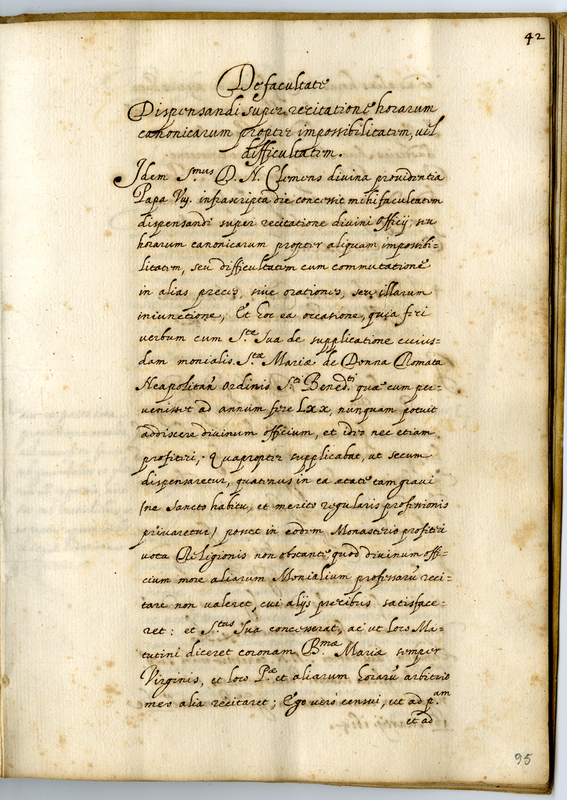 42
De facultate
Dispensandi super recitatione horarum
canonicarum propter impossibilitatem, vel
difficultatem.
Idem S.mus D. N. Clemens divina providentia
Papa Viij. infrascripta die concessit mihi facultatem
dispensandi super recitatione divini officij seu
horarum canonicarum propter aliquam impossibi=
litatem, seu difficultatem cum commutatione
in alias preces, sive orationes, seu illarum
iniunctione, Et hoc ea occasione, quia feci
verbum cum S.te Sua de supplicatione cuius=
dam monialis S.tæ Mariæ de Donna Romata
Neapolitan Ordinis S.ti Bened.ti quæ cum per=
venisset ad annum fere Lxx, nunquam potuit
addiscere divinum officium, et ideo nec etiam
profiteri, Quapropter supplicabat, ut secum
dispensaretur, quatenus in ea ætate tam gravi
(ne sancto habitu, et merito regularis professionis
privaretur) posset in eodem Monasterio profiteri
vota Religionis non obstante quod divinum offi=
cium more aliarum Monialium professarũ reci=
tare non valeret, cui alijs precibus satisface=
ret: et S.tas Sua concesserat, ac ut loco Ma=
tutini diceret coronam B.mæ Mariæ semper
Virginis, et loco P.æ et aliarum horarũ arbitrio
meo alia recitaret; Ego vero censui, ut ad p.am
et ad
95